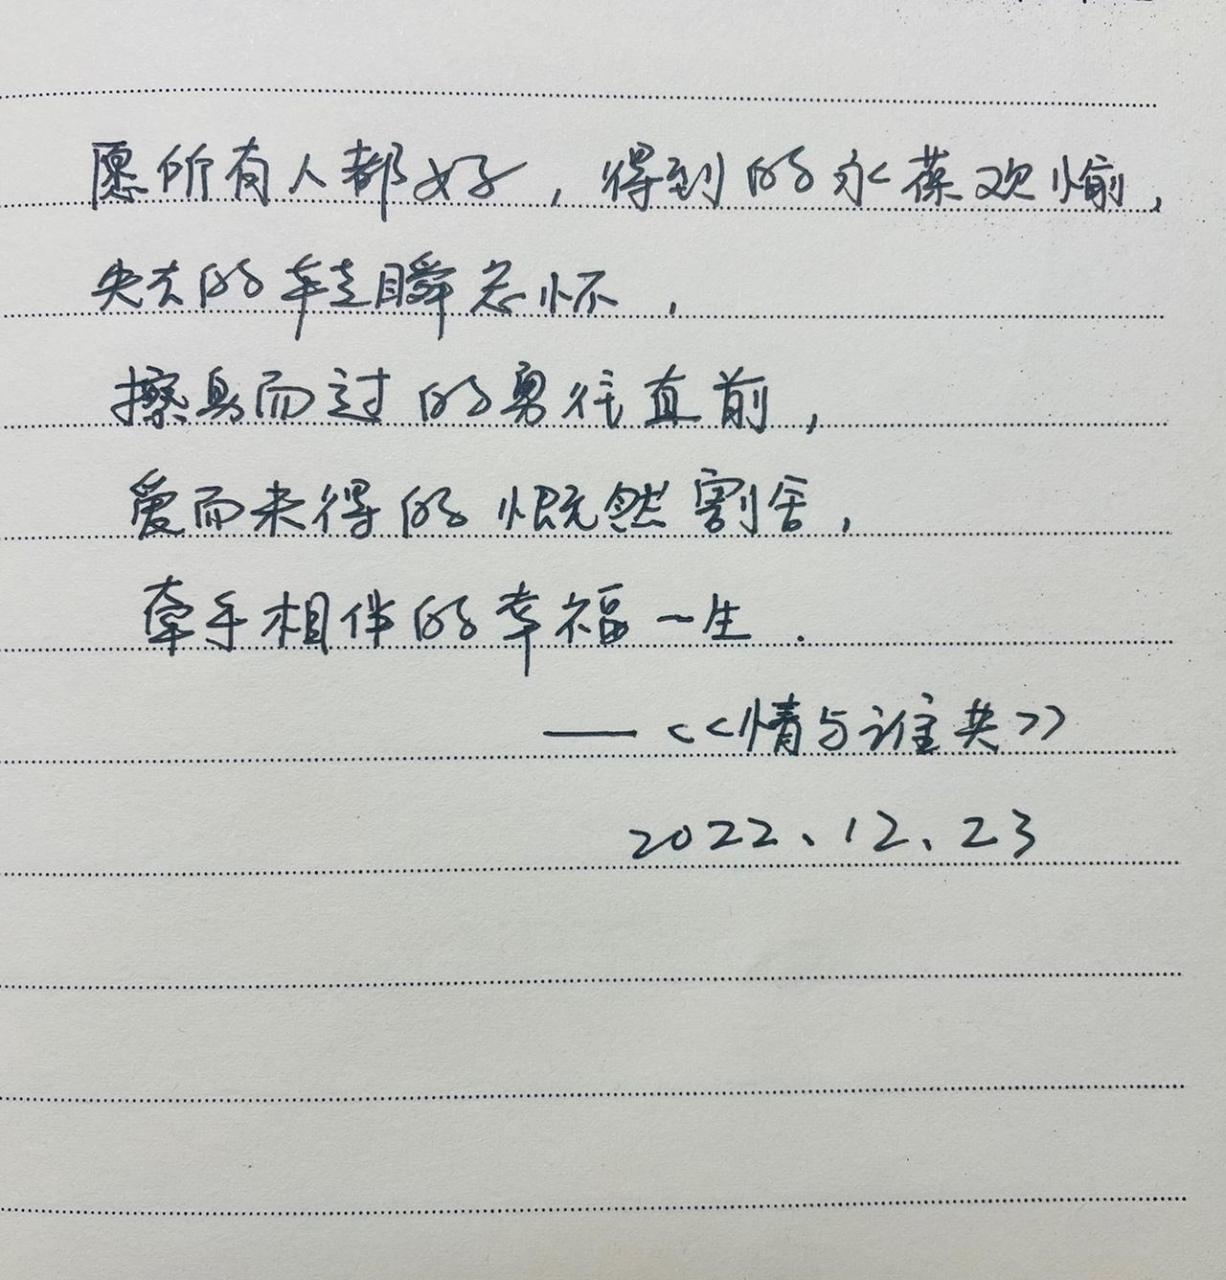 愿所有人都好，得到的永葆欢愉，
失去的转瞬忘怀，
擦身而过的勇往直前，
爱而未得的慨然割舍，
牵手相伴的幸福一生.
——<<情与谁共>>
2022、12、23